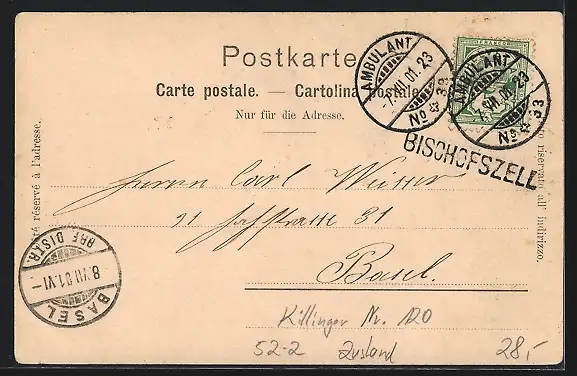 Postkarte
Carte postale. — Cartolina postale.
Nur für die Adresse.
AMBULANT
-7.VII.01.23
No 33
FRANCO
AMBULANT
-7.VII.01.23
No 33
BISCHOFSZELL
Herrn Carl
31
Basel.
té réservé à l'adresse.
to riservato all' indirizzo.
BRF. DISTR.
8.VII.01.VI-
BASEL
Killinger Nr. 120
52-2 Zustand 28,-